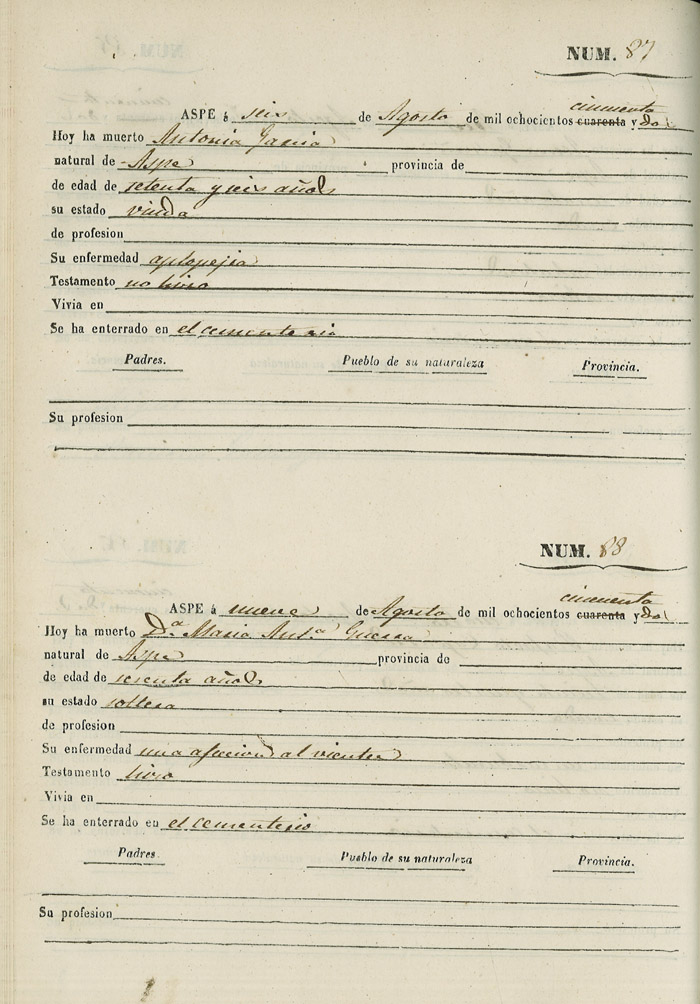 NUM. 87
cincuenta
ASPE á seis de Agosto de mil ochocientos cuarenta y dos
Hoy ha muerto Antonia Garcia
natural de Aspe provincia de
de edad de setenta y seis años
su estado viuda
de profesion
Su enfermedad aplopejia
Testamento no hiso
Vivia en
Se ha enterrado en el cementerio
Padres. Pueblo de su naturaleza Provincia.
Su profesion
NUM. 88
cincuenta
ASPE á nueve de Agosto de mil ochocientos cuarenta y dos
Hoy ha muerto D.ª Maria Ant.ª Guerra
natural de Aspe provincia de
de edad de sesenta años
su estado soltera
de profesion
Su enfermedad una afeccion al vientre
Testamento hiso
Vivia en
Se ha enterrado en el cementerio
Padres. Pueblo de su naturaleza Provincia.
Su profesion